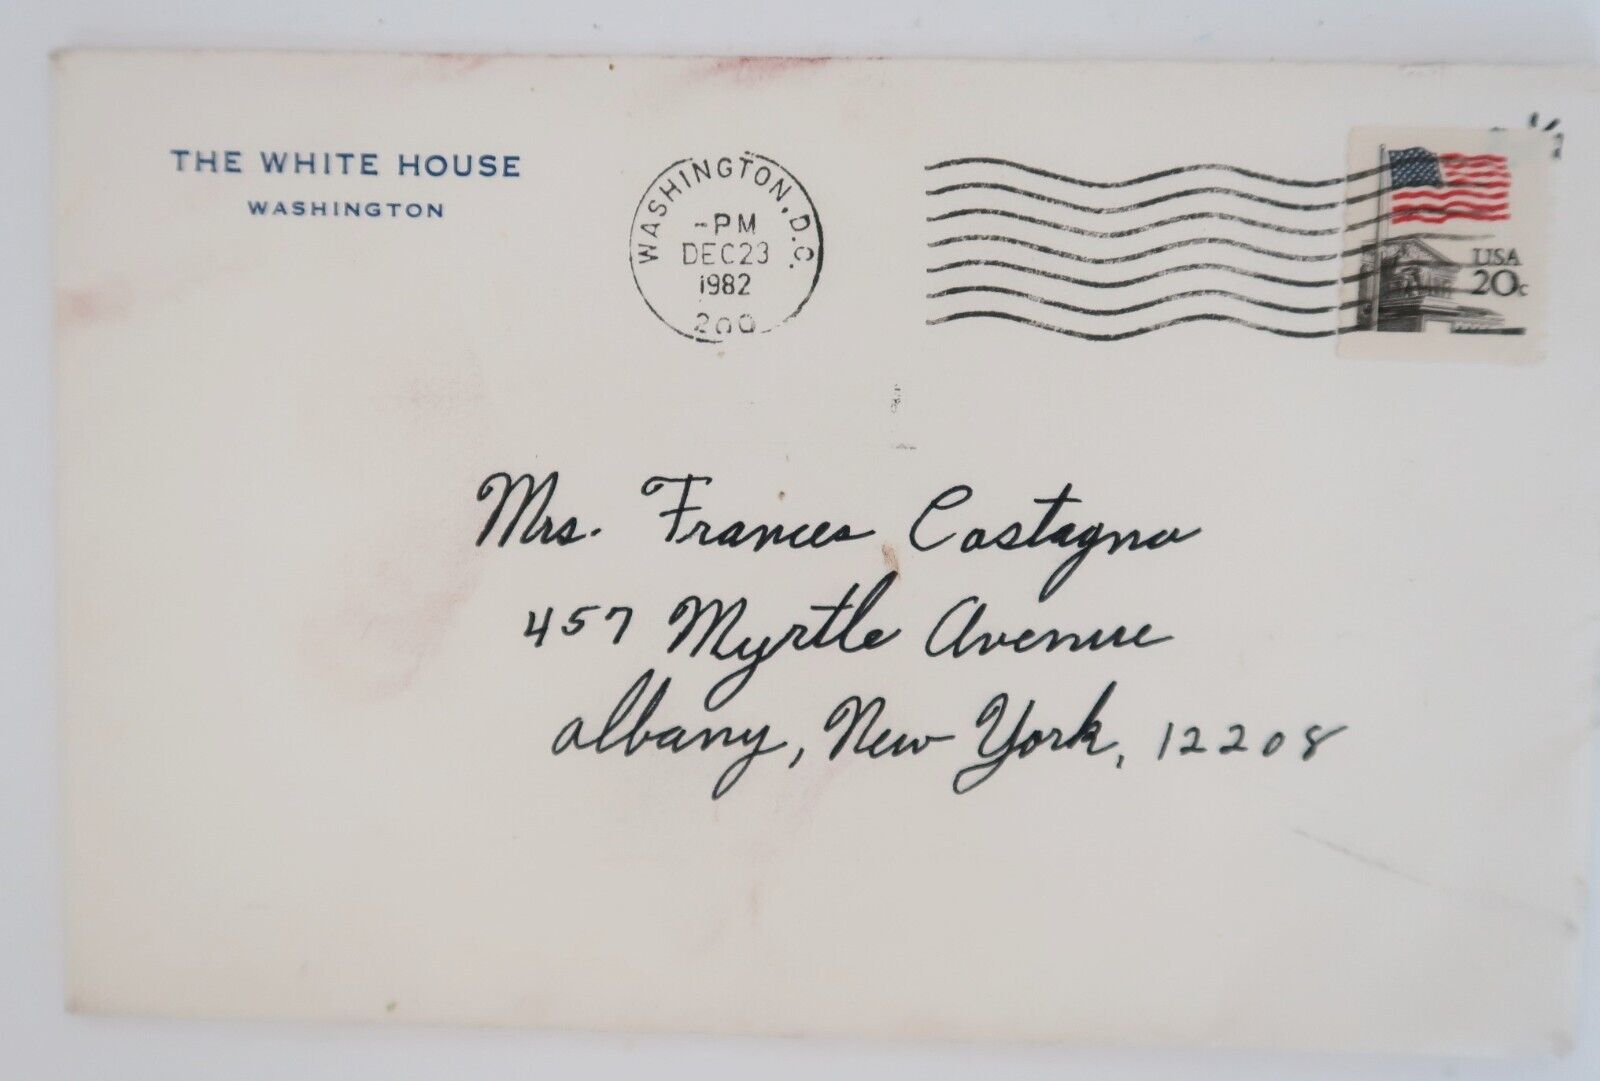 THE WHITE HOUSE
WASHINGTON
WASHINGTON, D.C.
-PM
DEC 23
1982
200
USA
20c
Mrs. Frances Castagna
457 Myrtle Avenue
Albany, New York, 12208